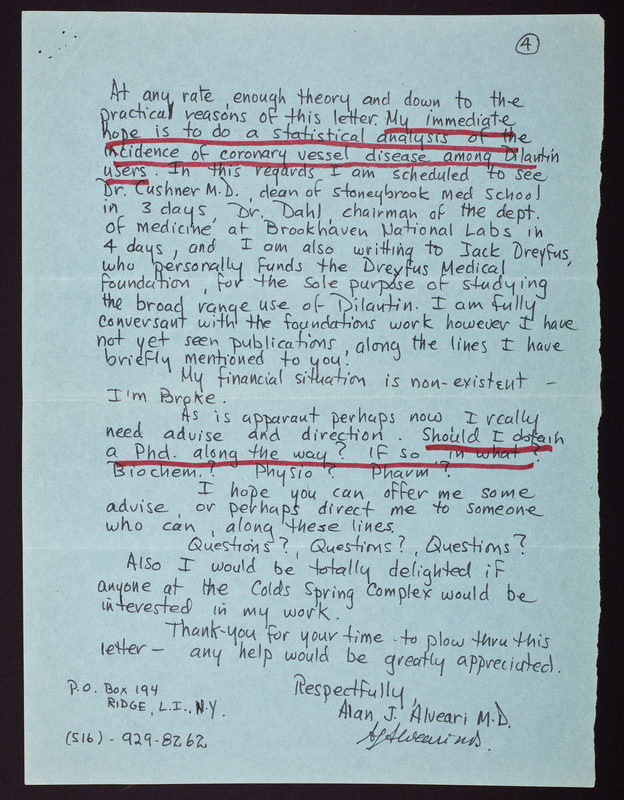 4
At any rate, enough theory and down to the
practical reasons of this letter. My immediate
hope is to do a statistical analysis of the
incidence of coronary vessel disease among Dilantin
users. In this regards I am scheduled to see
Dr. Cushner M.D., dean of stoneybrook med school
in 3 days, Dr. Dahl, chairman of the dept.
of medicine at Brookhaven National Labs in
4 days, and I am also writting to Jack Dreyfus,
who personally funds the Dreyfus Medical
Foundation, for the sole purpose of studying
the broad range use of Dilantin. I am fully
conversant with the foundations work however I have
not yet seen publications, along the lines I have
briefly mentioned to you.
My financial situation is non-existent -
I'm Broke.
As is apparant perhaps now I really
need advise and direction. Should I obtain
a Phd. along the way? If so in what?
Biochem.? Physio? Pharm?
I hope you can offer me some
advise, or perhaps direct me to someone
who can, along these lines.
Questions?, Questions?, Questions?
Also I would be totally delighted if
anyone at the Colds Spring Complex would be
interested in my work.
Thank-you for your time to plow thru this
letter - any help would be greatly appreciated.
Respectfully,
Alan J. Alveari M.D.
AJ Alveari MD.
P.O. Box 194
RIDGE, L.I., N.Y.
(516) - 929-8262